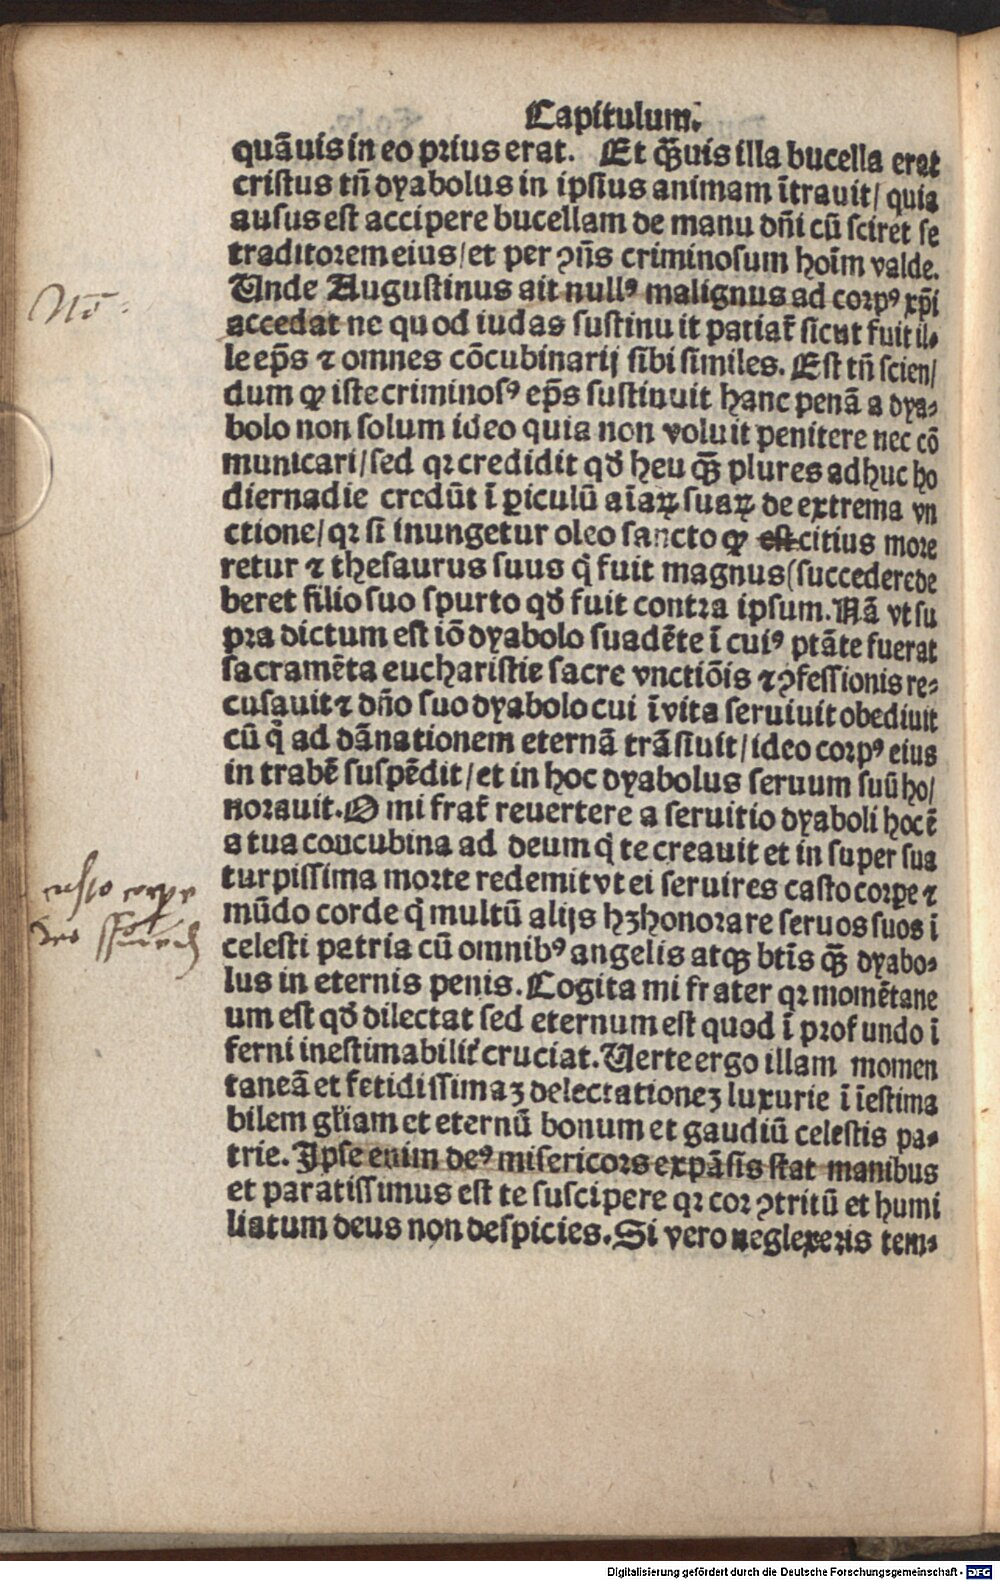 Capitulum.
quāuis in eo prius erat. Et q̄uis illa bucella erat
cristus tñ dyabolus in ipsius animam ītrauit/ quia
ausus est accipere bucellam de manu dñi cū sciret se
traditorem eius/ et per ꝯñs criminosum hoīm valde.
Unde Augustinus ait nullꝰ malignus ad corpꝰ xp̄i
Nō
accedat ne quod iudas sustinuit patiat̄ sicut fuit il-
le ep̄s ⁊ omnes cōcubinarij sibi similes. Est tñ scien/
dum ꝙ iste criminosꝰ ep̄s sustinuit hanc penā a dya-
bolo non solum ideo quia non voluit penitere nec cō
municari/ sed qꝛ credidit qd̄ heu q̄ȝ plures adhuc ho
dierna die credūt ī ꝑiculū aīaꝝ suaꝝ de extrema vn
ctione/ qꝛ si inungetur oleo sancto ꝙ est citius more
retur ⁊ thesaurus suus q̇ fuit magnus (succedere de
beret filio suo spurto qd̄ fuit contra ipsum. Nā vt su
pra dictum est iō dyabolo suadēte ī cuiꝰ ptāte fuerat
sacramēta eucharistie sacre vnctiōis ⁊ ꝯfessionis re-
cusauit ⁊ dño suo dyabolo cui ī vita seruiuit obediuit
cū q̇ ad dānationem eternā trāsiuit/ ideo corpꝰ eius
in trabē suspēdit/ et in hoc dyabolus seruum suū ho/
norauit. O mi frat̄ reuertere a seruitio dyaboli hoc ē
a tua concubina ad deum q̇ te creauit et in super sua
turpissima morte redemit vt ei seruires casto corpe ⁊
casto corpe
mūdo corde q̇ multū alijs hȝ honorare seruos suos ī
celesti patria cū omnibꝰ angelis atqȝ btīs q̄ȝ dyabo-
lus in eternis penis. Cogita mi frater qꝛ momētane
um est qd̄ dilectat sed eternum est quod ī profundo ī
ferni inestimabilit̄ cruciat. Uerte ergo illam momen
taneā et fetidissimaȝ delectationeȝ luxurie ī īestima
bilem gl̄iam et eternū bonum et gaudiū celestis pa-
trie. Ipse enim deꝰ misericors expāsis stat manibus
et paratissimus est te suscipere qꝛ cor ꝯtritū et humi
liatum deus non despicies. Si vero neglexeris tem-
Digitalisierung gefördert durch die Deutsche Forschungsgemeinschaft - DFG